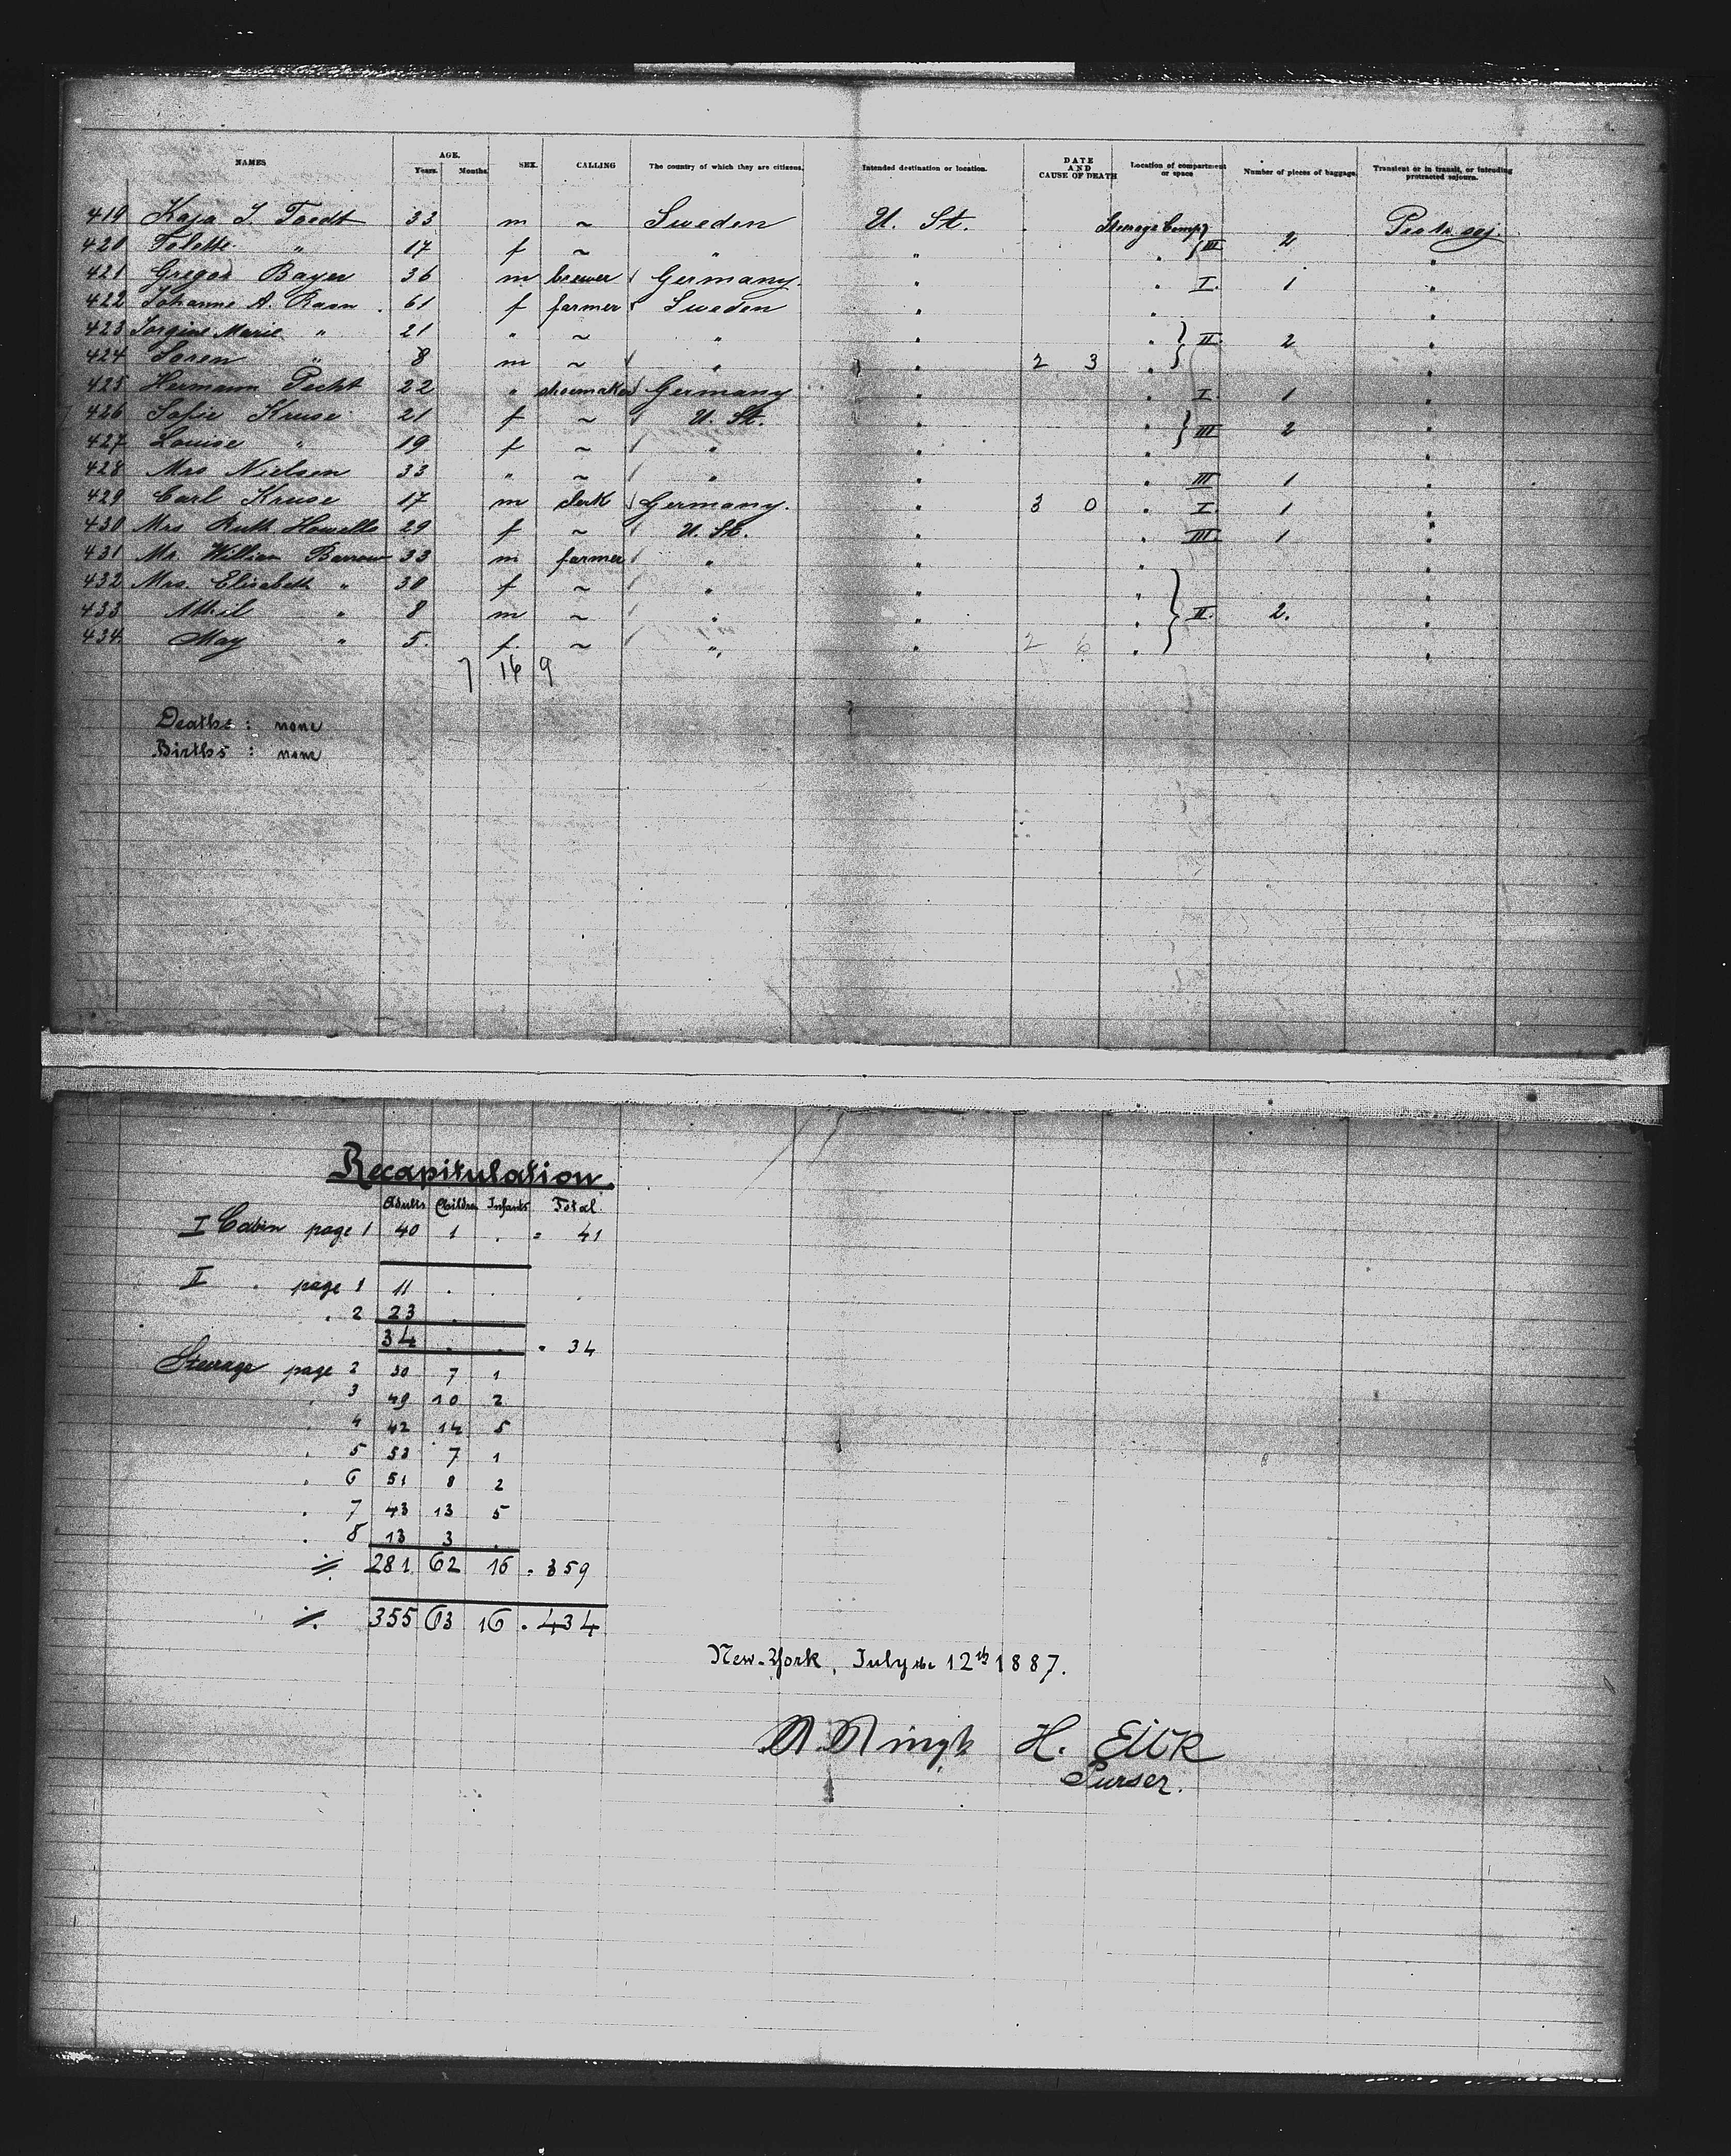 NAMES AGE. Years. Months. SEX. CALLING The country of which they are citizens. Intended destination or location. DATE AND CAUSE OF DEATH Location of compartment or space Number of pieces of baggage. Transient or in transit, or intending protracted sojourn.
419 Kaja I. Toedt 33 m ~ Sweden U. St. Steerage Comp. Protr. soj.
420 " 17 f ~ " " " III 2 "
421 Gregor Bayer 36 m brewer Germany. " " I. 1 "
422 Johanne A. Raan 61 f farmer Sweden " " "
423 Jorgine Marie " 21 " ~ " " " II. 2 "
424 Soren " 8 m ~ " " 2 3 " "
425 Hermann Pecht 22 " shoemaker Germany " " I. 1 "
426 Sofie Kruse 21 f ~ U. St. " " III 2 "
427 Louise " 19 f ~ " " " "
428 Mrs Nielsen 33 " ~ " " " III 1 "
429 Carl Kruse 17 m clerk Germany. " 3 0 " I. 1 "
430 Mrs Ruth Howells 29 f ~ U. St. " " III. 1 "
431 Mr. William Barrow 33 m farmer " " " "
432 Mrs. Elisabeth " 30 f ~ " " " "
433 " 8 m ~ " " " II. 2. "
434 May " 5. f. ~ " " 2 6 " "
7 16 9
Deaths : none
Births : none
Recapitulation.
Adults Children Infants Total.
I Cabin page 1 40 1 . = 41
II " page 1 11 . .
" 2 23 .
34 . . = 34
Steerage page 2 30 7 1
" 3 49 10 2
" 4 42 14 5
" 5 53 7 1
" 6 51 8 2
" 7 43 13 5
" 8 13 3 .
281. 62 16 = 359
355 63 16 = 434
New-York, July the 12th 1887.
H. Eilk
Purser.